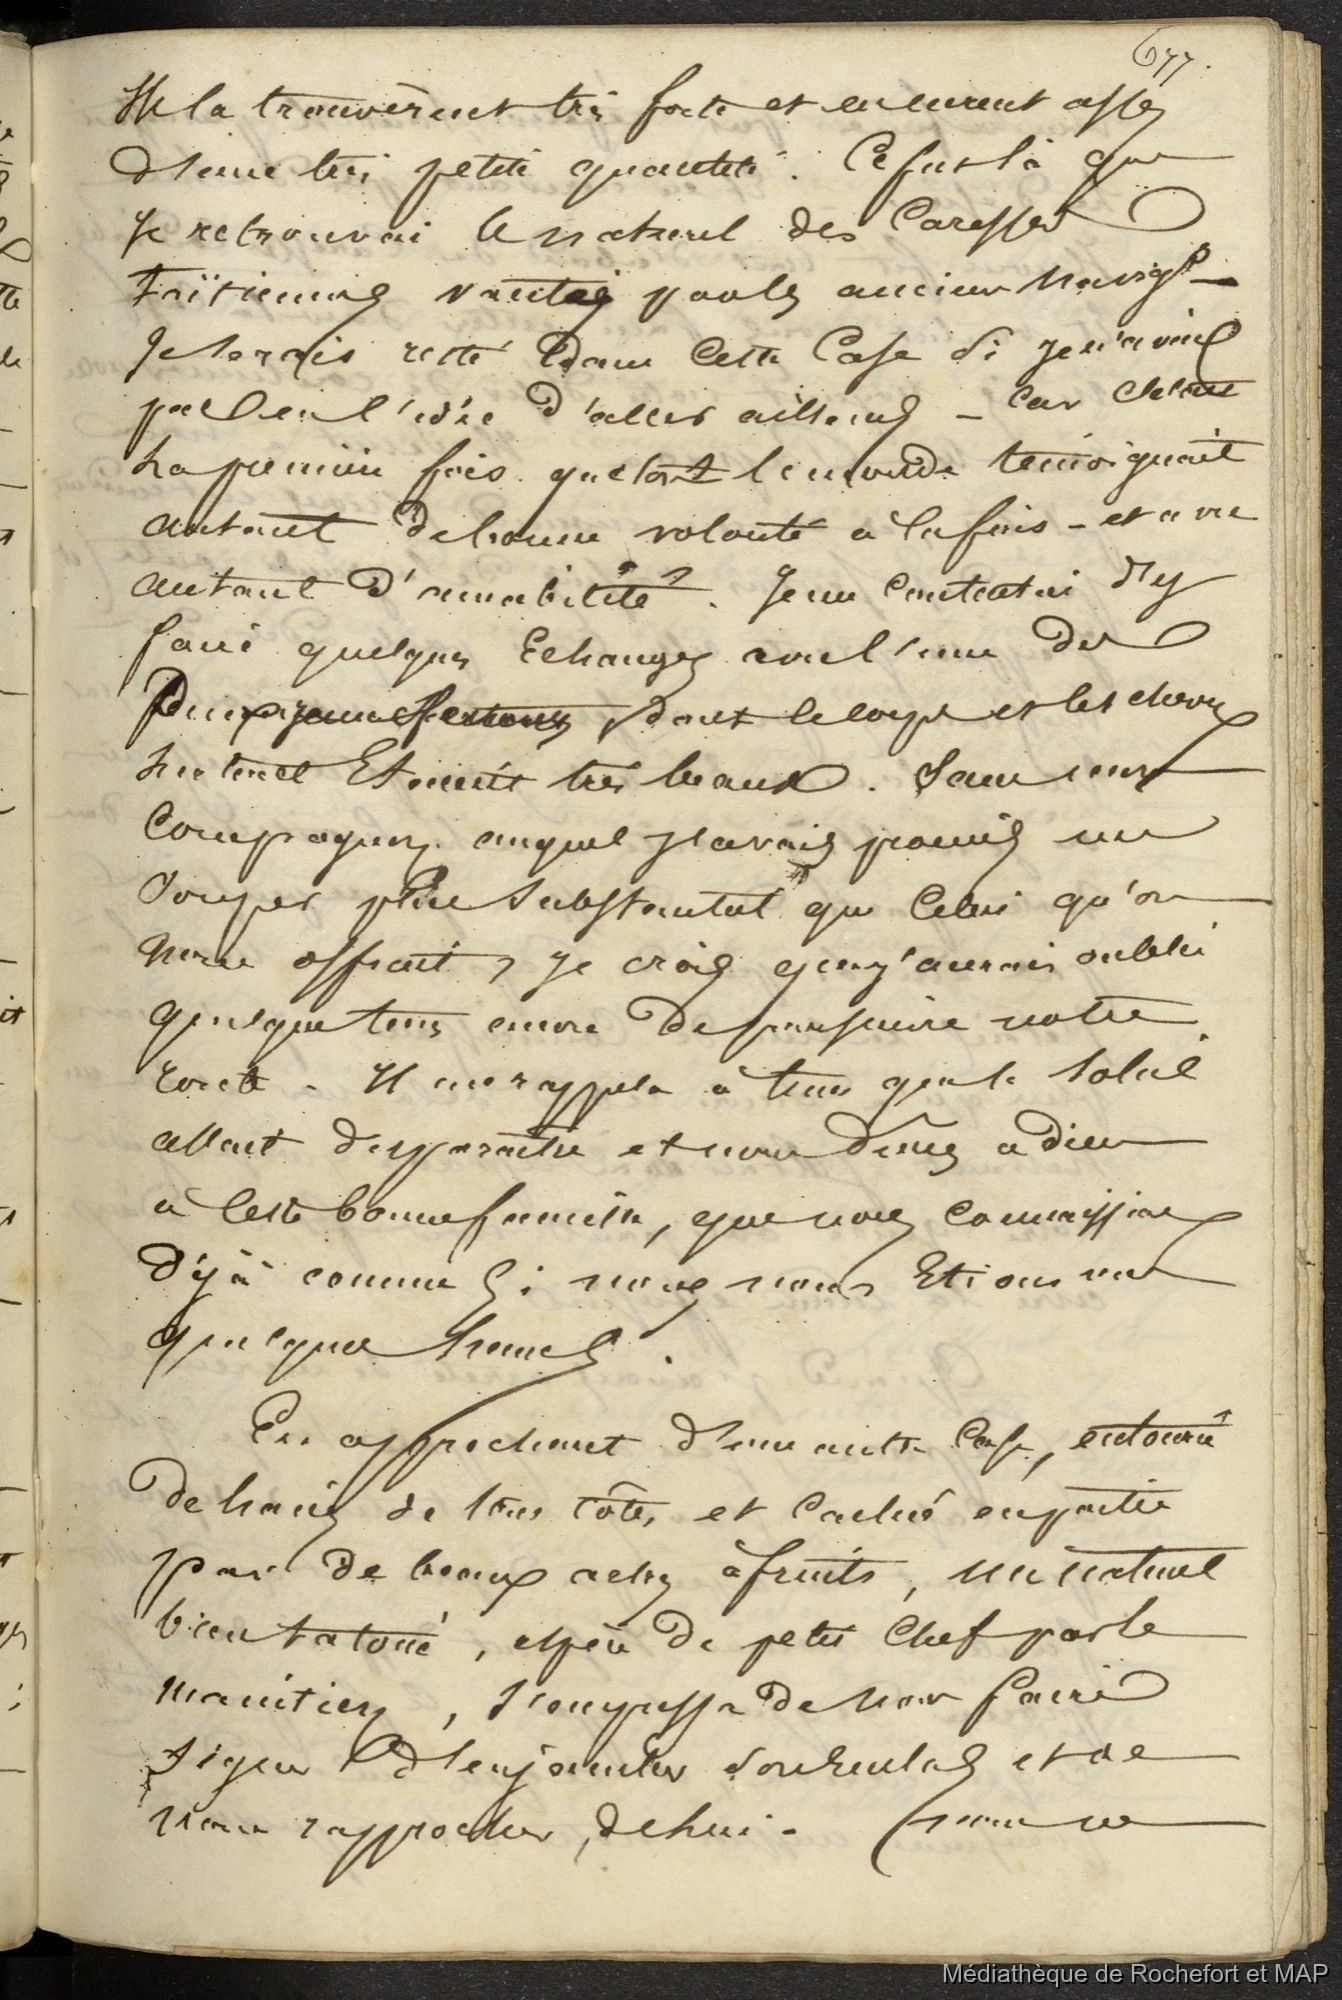 677.
Ils la trouvèrent très forte et en eurent assez
d'une très petite quantité. Ce fut là que
je retrouvai le naturel des Caresses
taïtiennes vantées par les anciens navigrs
Je serais resté dans cette Case si je n'avais
pas eu l'idée d'aller ailleurs - Car c'était
la première fois que tout le monde témoignait
autant de bonne volonté à la fois - et avec
autant d'amabilité. Je me contentai d'y
faire quelques Echanges avec l'une des
deux jeunes femmes, dont le corps et les cheveux
Etaient très beaux. Sans mon
Compagnon auquel j'avais promis un
souper plus substantiel que Celui qu'on
nous offrait, je crois que j'aurais oublié
quelque tems encore de poursuivre notre
route - Il me rappela à tems que le soleil
allait disparaître et nous dîmes adieu
à Cette bonne famille, que nous connaissions
déjà comme si nous nous Etions vus
quelques heures.
En approchant d'une autre Case, entourée
de haies de tous côtés et Cachée en partie
par de beaux arbres à fruits, un naturel
bien tatoué, espèce de petit Chef par le
maintien, s'empressa de nous faire
signe d'enjamber et de
nous rapprocher de lui - nous ne
Médiathèque de Rochefort et MAP